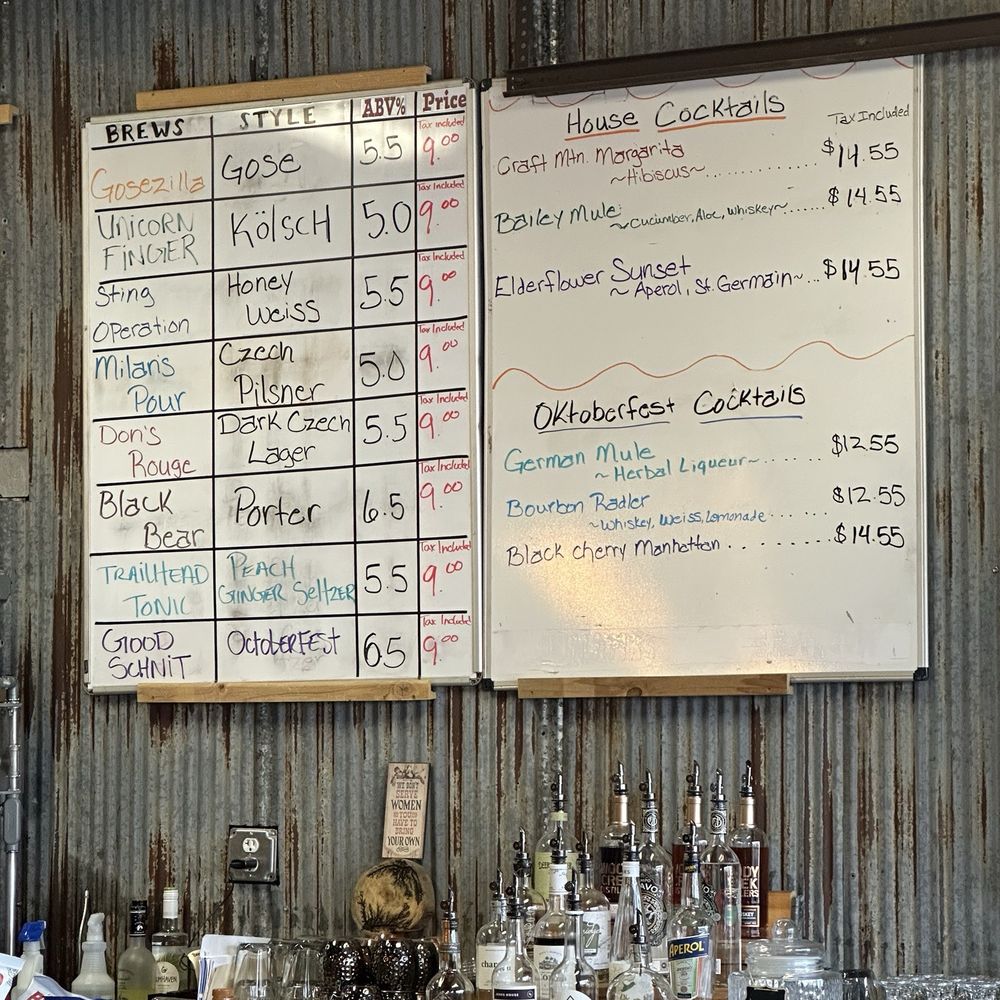 BREWS STYLE ABV% Price
Tax included
Gosezilla GOSE 5.5 9.00
Tax Included
UNICORN
FINGER KÖLSCH 5.0 9.00
Tax Included
Sting
Operation Honey
Weiss 5.5 9.00
Tax Included
Milan's
Pour Czech
Pilsner 5.0 9.00
Tax Included
Don's
Rouge Dark Czech
Lager 5.5 9.00
Tax Included
Black
Bear Porter 6.5 9.00
Tax Included
TRAILHEAD
TONIC PEACH
GINGER SeltzER 5.5 9.00
Tax Included
GOOD
SCHNIT OCTOBERFEST 6.5 9.00
House Cocktails
Tax Included
Craft Mtn. Margarita
~Hibiscus~ $14.55
Bailey Mule:
~Cucumber, Aloe, Whiskey~ $14.55
Elderflower Sunset
~Aperol, St. Germain~ $14.55
Oktoberfest Cocktails
German Mule
~Herbal Liqueur~ $12.55
Bourbon Radler
~Whiskey, Weiss, Lemonade $12.55
Black Cherry Manhattan $14.55
WE DON'T
SERVE
WOMEN
YOU
HAVE TO
BRING
YOUR OWN
APEROL